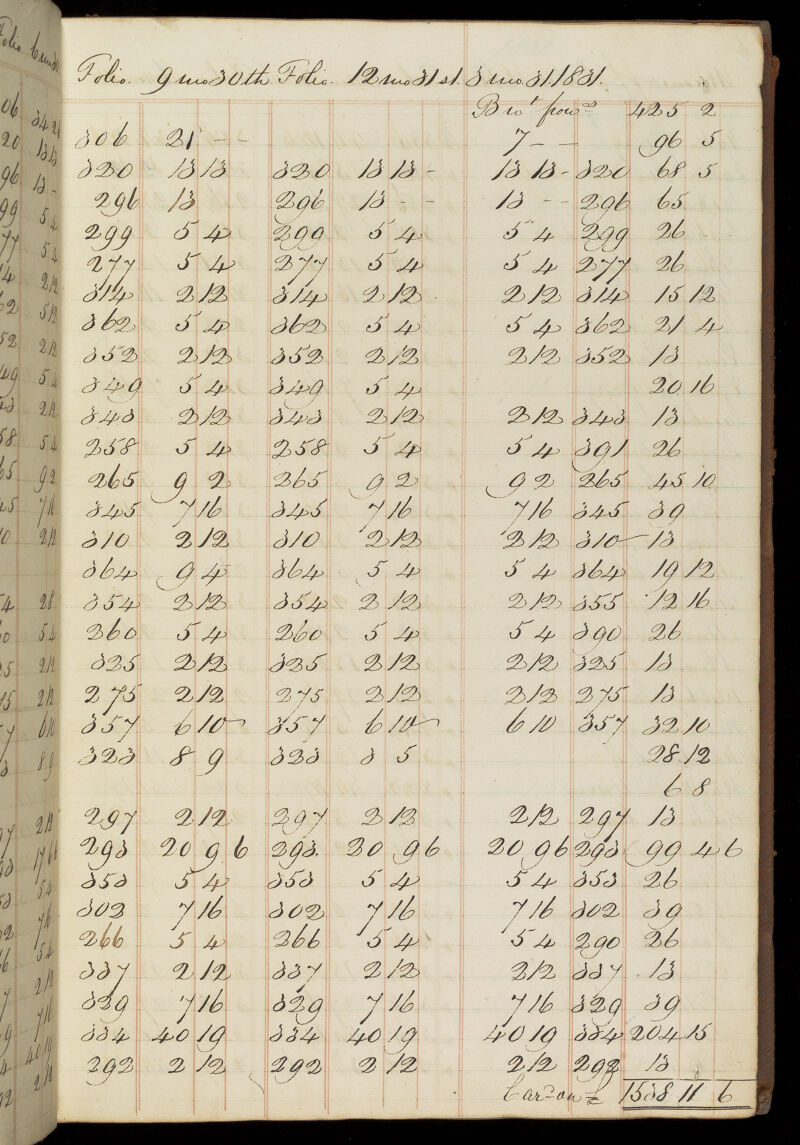 Folio. 9 mo 30th Folio. 12 mo 31 st. 3 mo. 31. 1831.
Brot forwd 425 2
306 21 - - 7 - - 96 5
320 13 13 320 13 13 - 13 13 - 320 68 5
296 13 296 13 - - 13 - - 296 65
299 5 4 299 5 4 5 4 299 26
277 5 4 277 5 4 5 4 277 26
314 2 12 314 2 12 2 12 314 15 12
362 5 4 362 5 4 5 4 362 21 4
352 2 12 352 2 12 2 12 352 13
349 5 4 349 5 4 20 16
343 2 12 343 2 12 2 12 343 13
258 5 4 258 5 4 5 4 391 26
265 9 2 265 9 2 9 2 265 45 10
345 7 16 345 7 16 7 16 345 39
310 2 12 310 2 12 2 12 310 13
364 9 4 364 5 4 5 4 364 19 12
354 2 12 354 2 12 2 12 355 12 16
260 5 4 260 5 4 5 4 390 26
325 2 12 325 2 12 2 12 325 13
275 2 12 275 2 12 2 12 275 13
357 6 10 357 6 10 6 10 357 32 10
323 8 9 323 3 5 28 12
6 8
297 2 12 297 2 12 2 12 297 13
293 20 9 6 293 20 9 6 20 9 6 293 99 4 6
353 5 4 353 5 4 5 4 353 26
302 7 16 302 7 16 7 16 302 39
266 5 4 266 5 4 5 4 290 26
337 2 12 337 2 12 2 12 337 13
329 7 16 329 7 16 7 16 329 39
334 40 19 334 40 19 40 19 334 204 15
292 2 12 292 2 12 2 12 292 13
Card on £ 1538 11 6